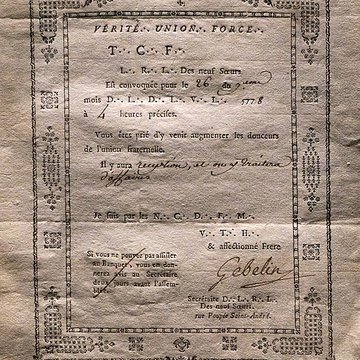 VERITÉ. UNION. FORCE.
T∴ C∴ F∴
L∴ R∴ L∴ Des neuf Sœurs
Est convoquée pour le 26 du
mois D∴ L∴ D∴ L∴ V∴ L∴ 5778
à 4 heures précises.
Vous êtes prié d'y venir augmenter les douceurs
de l'union fraternelle.
Il y aura réception, et on y traitera
d'affaires
Je suis par les N∴ C∴ D∴ F∴ M∴
V∴ T∴ H∴
& affectionné Frere
Gebelin
Si vous ne pouvez pas assister
au Banquet, vous en don-
nerez avis au Secrétaire
deux jours avant l'assem-
blée.
Secrétaire D∴ L∴ R∴ L∴
Des neuf Sœurs.
rue Poupée Saint-André.